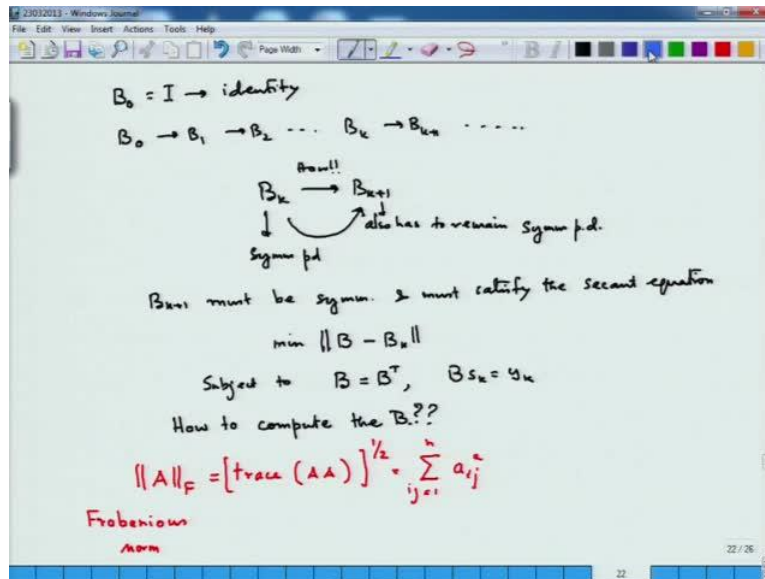 23032013 - Windows Journal
File Edit View Insert Actions Tools Help
Page Width
B₀ = I → identity
B₀ → B₁ → B₂ ... Bₖ → Bₖ₊₁ .....
How!!
Bₖ → Bₖ₊₁
also has to remain symm p.d.
Symm pd
Bₖ₊₁ must be symm. & must satisfy the secant equation
min ||B - Bₖ||
Subject to B = Bᵀ, B sₖ = yₖ
How to compute the B??
||A||_F = [trace (AA)]^{1/2} = ∑_{ij=1}^{n} a_{ij}^2
Frobenious
norm
22 / 26
22